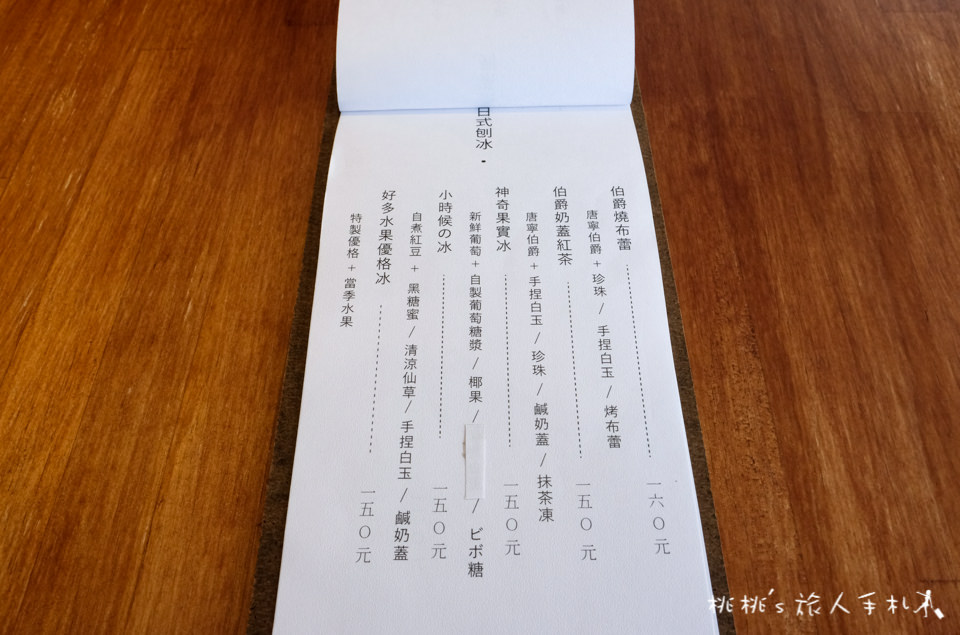 日式刨冰・
伯爵燒布蕾 一六〇元
唐寧伯爵 + 珍珠 / 手捏白玉 / 烤布蕾
伯爵奶蓋紅茶 一五〇元
唐寧伯爵 + 手捏白玉 / 珍珠 / 鹹奶蓋 / 抹茶凍
神奇果實冰 一五〇元
新鮮葡萄 + 自製葡萄糖漿 / 椰果 / / ピポ糖
小時候の冰 一五〇元
自煮紅豆 + 黑糖蜜 / 清涼仙草 / 手捏白玉 / 鹹奶蓋
好多水果優格冰 一五〇元
特製優格 + 當季水果
桃桃's 旅人手札